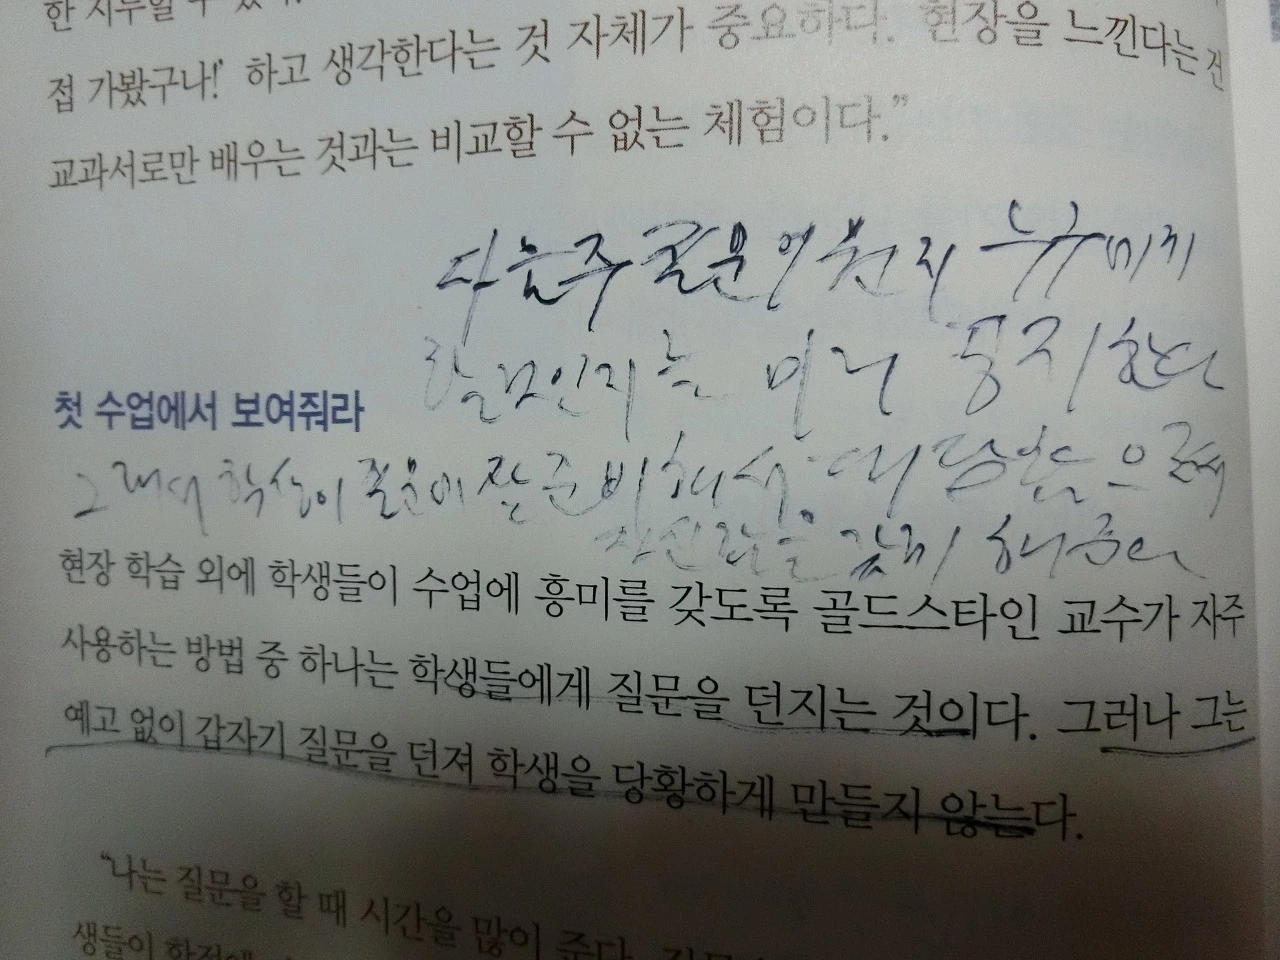 접 가봤구나!' 하고 생각한다는 것 자체가 중요하다. 현장을 느낀다는 건
교과서로만 배우는 것과는 비교할 수 없는 체험이다.”
다음주 질문이 뭔지 누구에게
할 것인지는 미리 공지한다
첫 수업에서 보여줘라
그래서 학생이 질문에 잘 준비해서 대답함으로써
자신감을 갖게 해준다
현장 학습 외에 학생들이 수업에 흥미를 갖도록 골드스타인 교수가 자주
사용하는 방법 중 하나는 학생들에게 질문을 던지는 것이다. 그러나 그는
예고 없이 갑자기 질문을 던져 학생을 당황하게 만들지 않는다.
“나는 질문을 할 때 시간을 많이 준다.
생들이